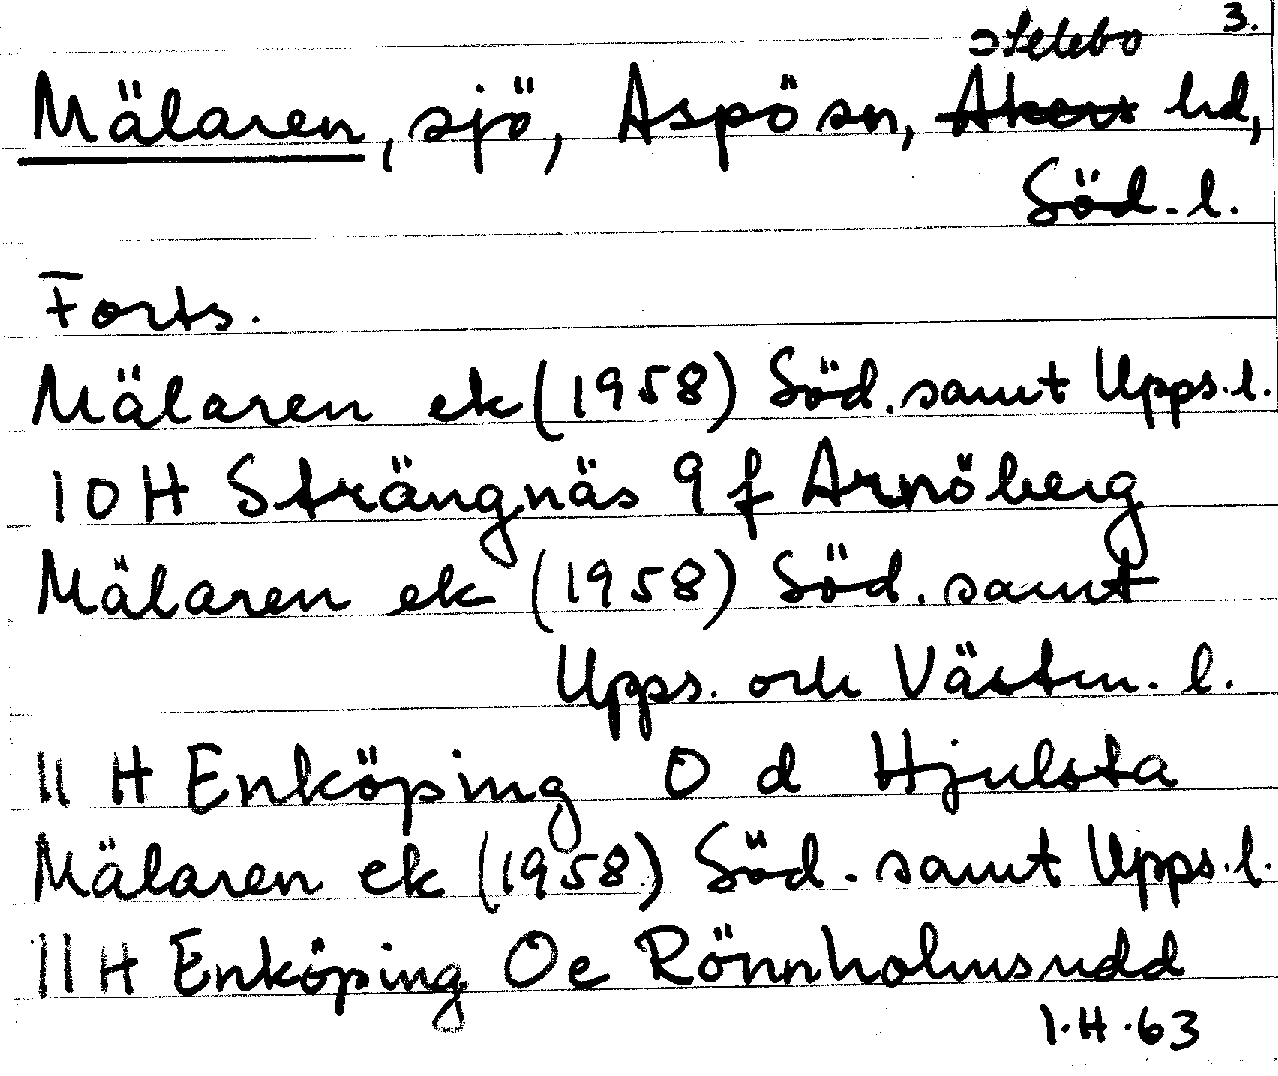 3.
Selebo
Mälaren, sjö, Aspö sn, Åkers hd,
Söd. l.
Forts.
Mälaren ek (1958) Söd. samt Upps. l.
10 H Strängnäs 9 f Arnöberg
Mälaren ek (1958) Söd. samt
Upps. och Västm. l.
11 H Enköping 0 d Hjulsta
Mälaren ek (1958) Söd. samt Upps. l.
11 H Enköping 0e Rönnholmsudd
1.H.63